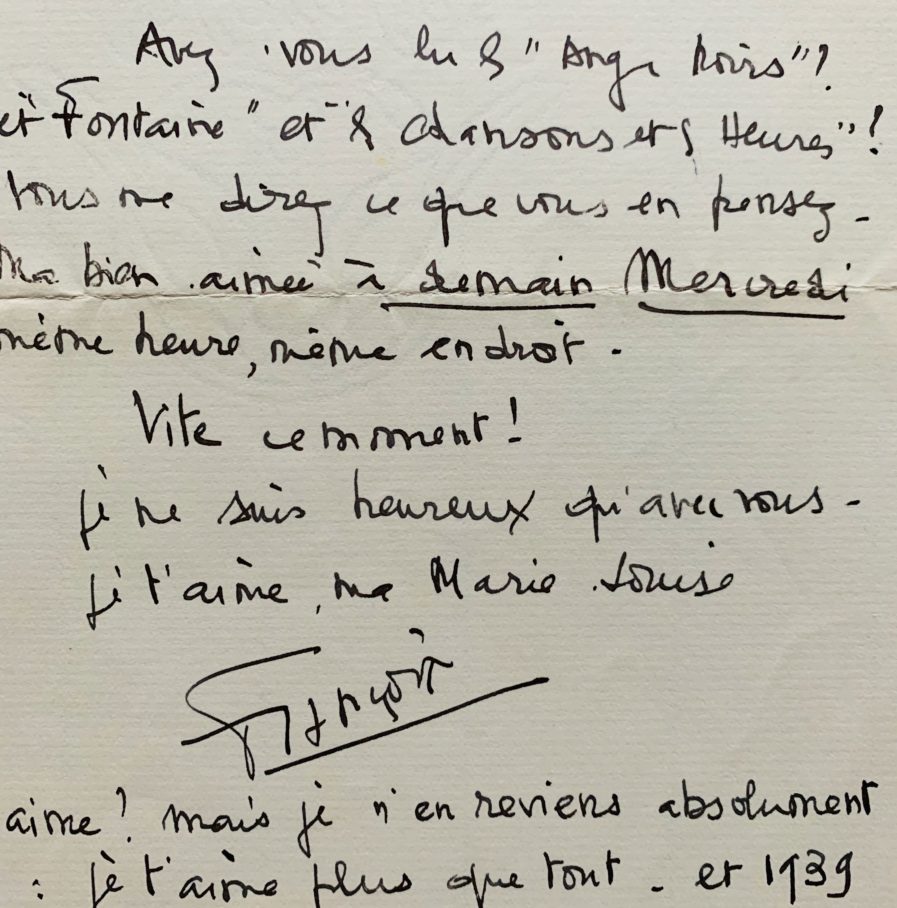 Avez vous lu les "Anges Noirs"?
et "Fontaine" et "les chansons et les Heures"!
Vous me direz ce que vous en pensez -
Ma bien-aimée à demain Mercredi
même heure, même endroit.
Vite ce moment!
je ne suis heureux qu'avec vous -
je t'aime, ma Marie-Louise
François
aime? mais je n'en reviens absolument
: je t'aime plus que tout - et 1939